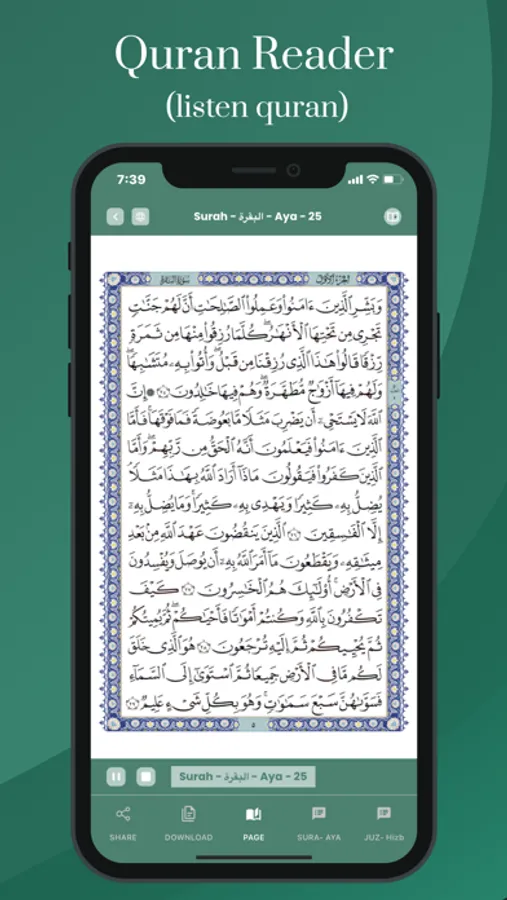 Quran Reader
(listen quran)
7:39
Surah - البقرة - Aya - 25
سورة البقرة
الجزء الأول
وَبَشِّرِ الَّذِينَ ءَامَنُوا وَعَمِلُوا الصَّالِحَاتِ أَنَّ لَهُمْ جَنَّٰتٍ
تَجْرِى مِن تَحْتِهَا الْأَنْهَٰرُ كُلَّمَا رُزِقُوا مِنْهَا مِن ثَمَرَةٍ
رِّزْقًا قَالُوا هَٰذَا الَّذِى رُزِقْنَا مِن قَبْلُ وَأُتُوا بِهِ مُتَشَٰبِهًا
وَلَهُمْ فِيهَا أَزْوَٰجٌ مُّطَهَّرَةٌ وَهُمْ فِيهَا خَٰلِدُونَ ٢٥ إِنَّ
اللَّهَ لَا يَسْتَحْىِ أَن يَضْرِبَ مَثَلًا مَّا بَعُوضَةً فَمَا فَوْقَهَا فَأَمَّا
الَّذِينَ ءَامَنُوا فَيَعْلَمُونَ أَنَّهُ الْحَقُّ مِن رَّبِّهِمْ وَأَمَّا
الَّذِينَ كَفَرُوا فَيَقُولُونَ مَاذَا أَرَادَ اللَّهُ بِهَٰذَا مَثَلًا
يُضِلُّ بِهِ كَثِيرًا وَيَهْدِى بِهِ كَثِيرًا وَمَا يُضِلُّ بِهِ
إِلَّا الْفَٰسِقِينَ ٢٦ الَّذِينَ يَنقُضُونَ عَهْدَ اللَّهِ مِن بَعْدِ
مِيثَٰقِهِ وَيَقْطَعُونَ مَا أَمَرَ اللَّهُ بِهِ أَن يُوصَلَ وَيُفْسِدُونَ
فِى الْأَرْضِ أُولَٰئِكَ هُمُ الْخَٰسِرُونَ ٢٧ كَيْفَ
تَكْفُرُونَ بِاللَّهِ وَكُنتُمْ أَمْوَٰتًا فَأَحْيَٰكُمْ ثُمَّ يُمِيتُكُمْ
ثُمَّ يُحْيِيكُمْ ثُمَّ إِلَيْهِ تُرْجَعُونَ ٢٨ هُوَ الَّذِى خَلَقَ
لَكُم مَّا فِى الْأَرْضِ جَمِيعًا ثُمَّ اسْتَوَىٰ إِلَى السَّمَاءِ
فَسَوَّىٰهُنَّ سَبْعَ سَمَٰوَٰتٍ وَهُوَ بِكُلِّ شَىْءٍ عَلِيمٌ ٢٩
٥
Surah - البقرة - Aya - 25
SHARE
DOWNLOAD
PAGE
SURA- AYA
JUZ- Hizb